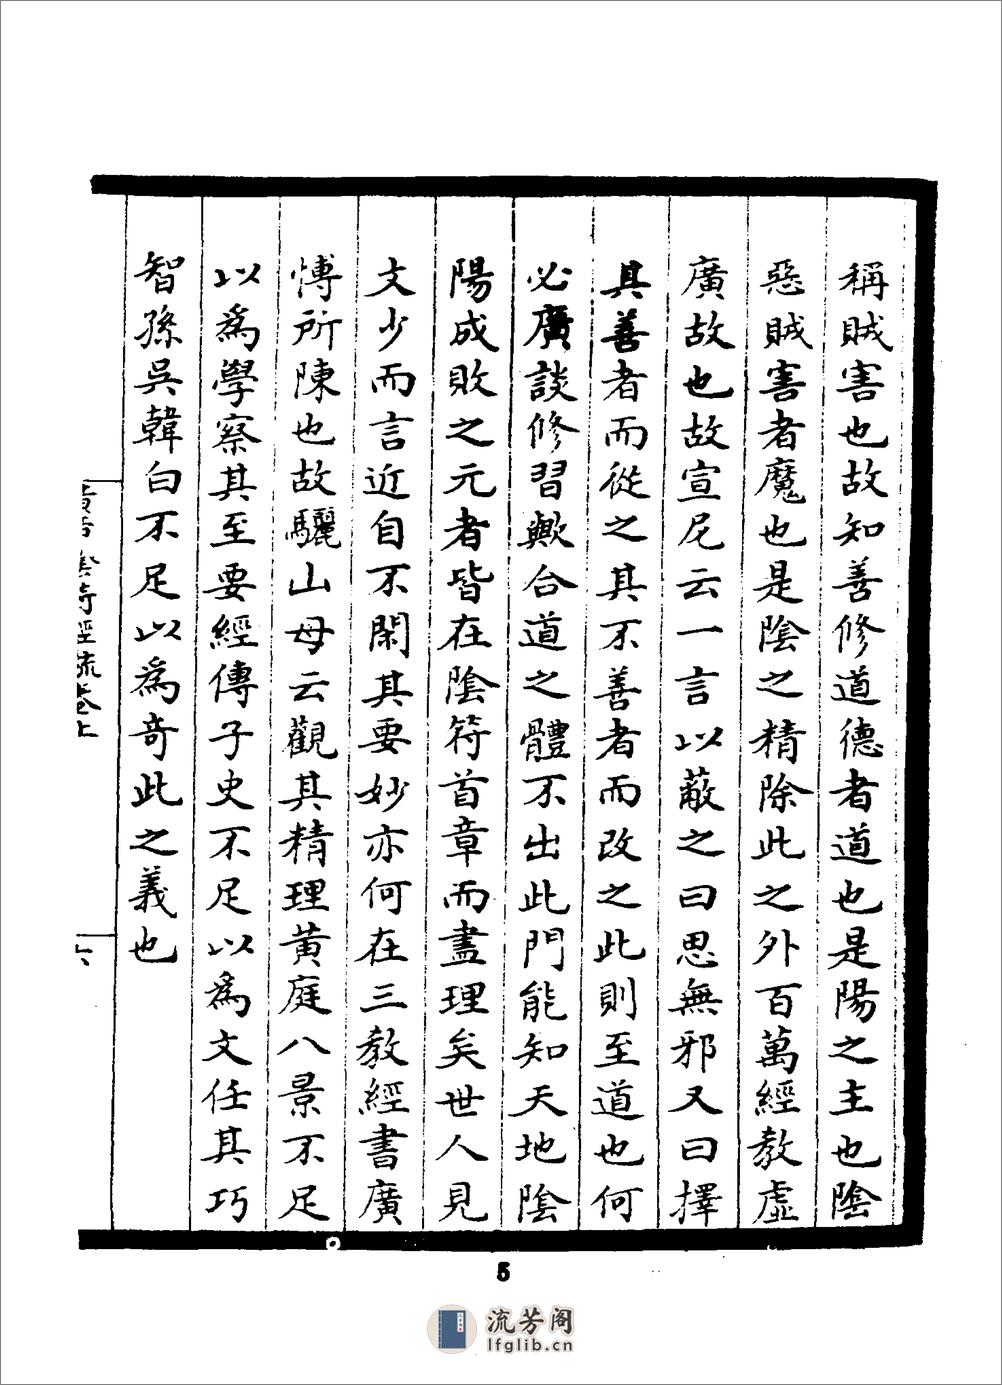 稱賊害也故知善修道德者道也是陽之主也陰
惡賊害者魔也是陰之精除此之外百萬經教虛
廣故也故宣尼云一言以蔽之曰思無邪又曰擇
其善者而從之其不善者而改之此則至道也何
必廣談修習歟合道之體不出此門能知天地陰
陽成敗之元者皆在陰符首章而盡理矣世人見
文少而言近自不閑其要妙亦何在三教經書廣
愽所陳也故驪山母云觀其精理黃庭八景不足
以爲學察其至要經傳子史不足以爲文任其巧
智孫吳韓白不足以爲奇此之義也
陰符經疏卷上
六
5
流芳阁
lfglib.cn